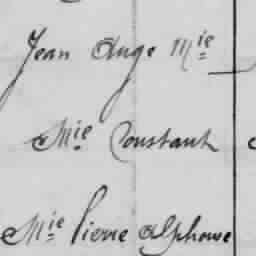 Jean Ange Mie
Mie Constant
Mie Pierre Alphonse